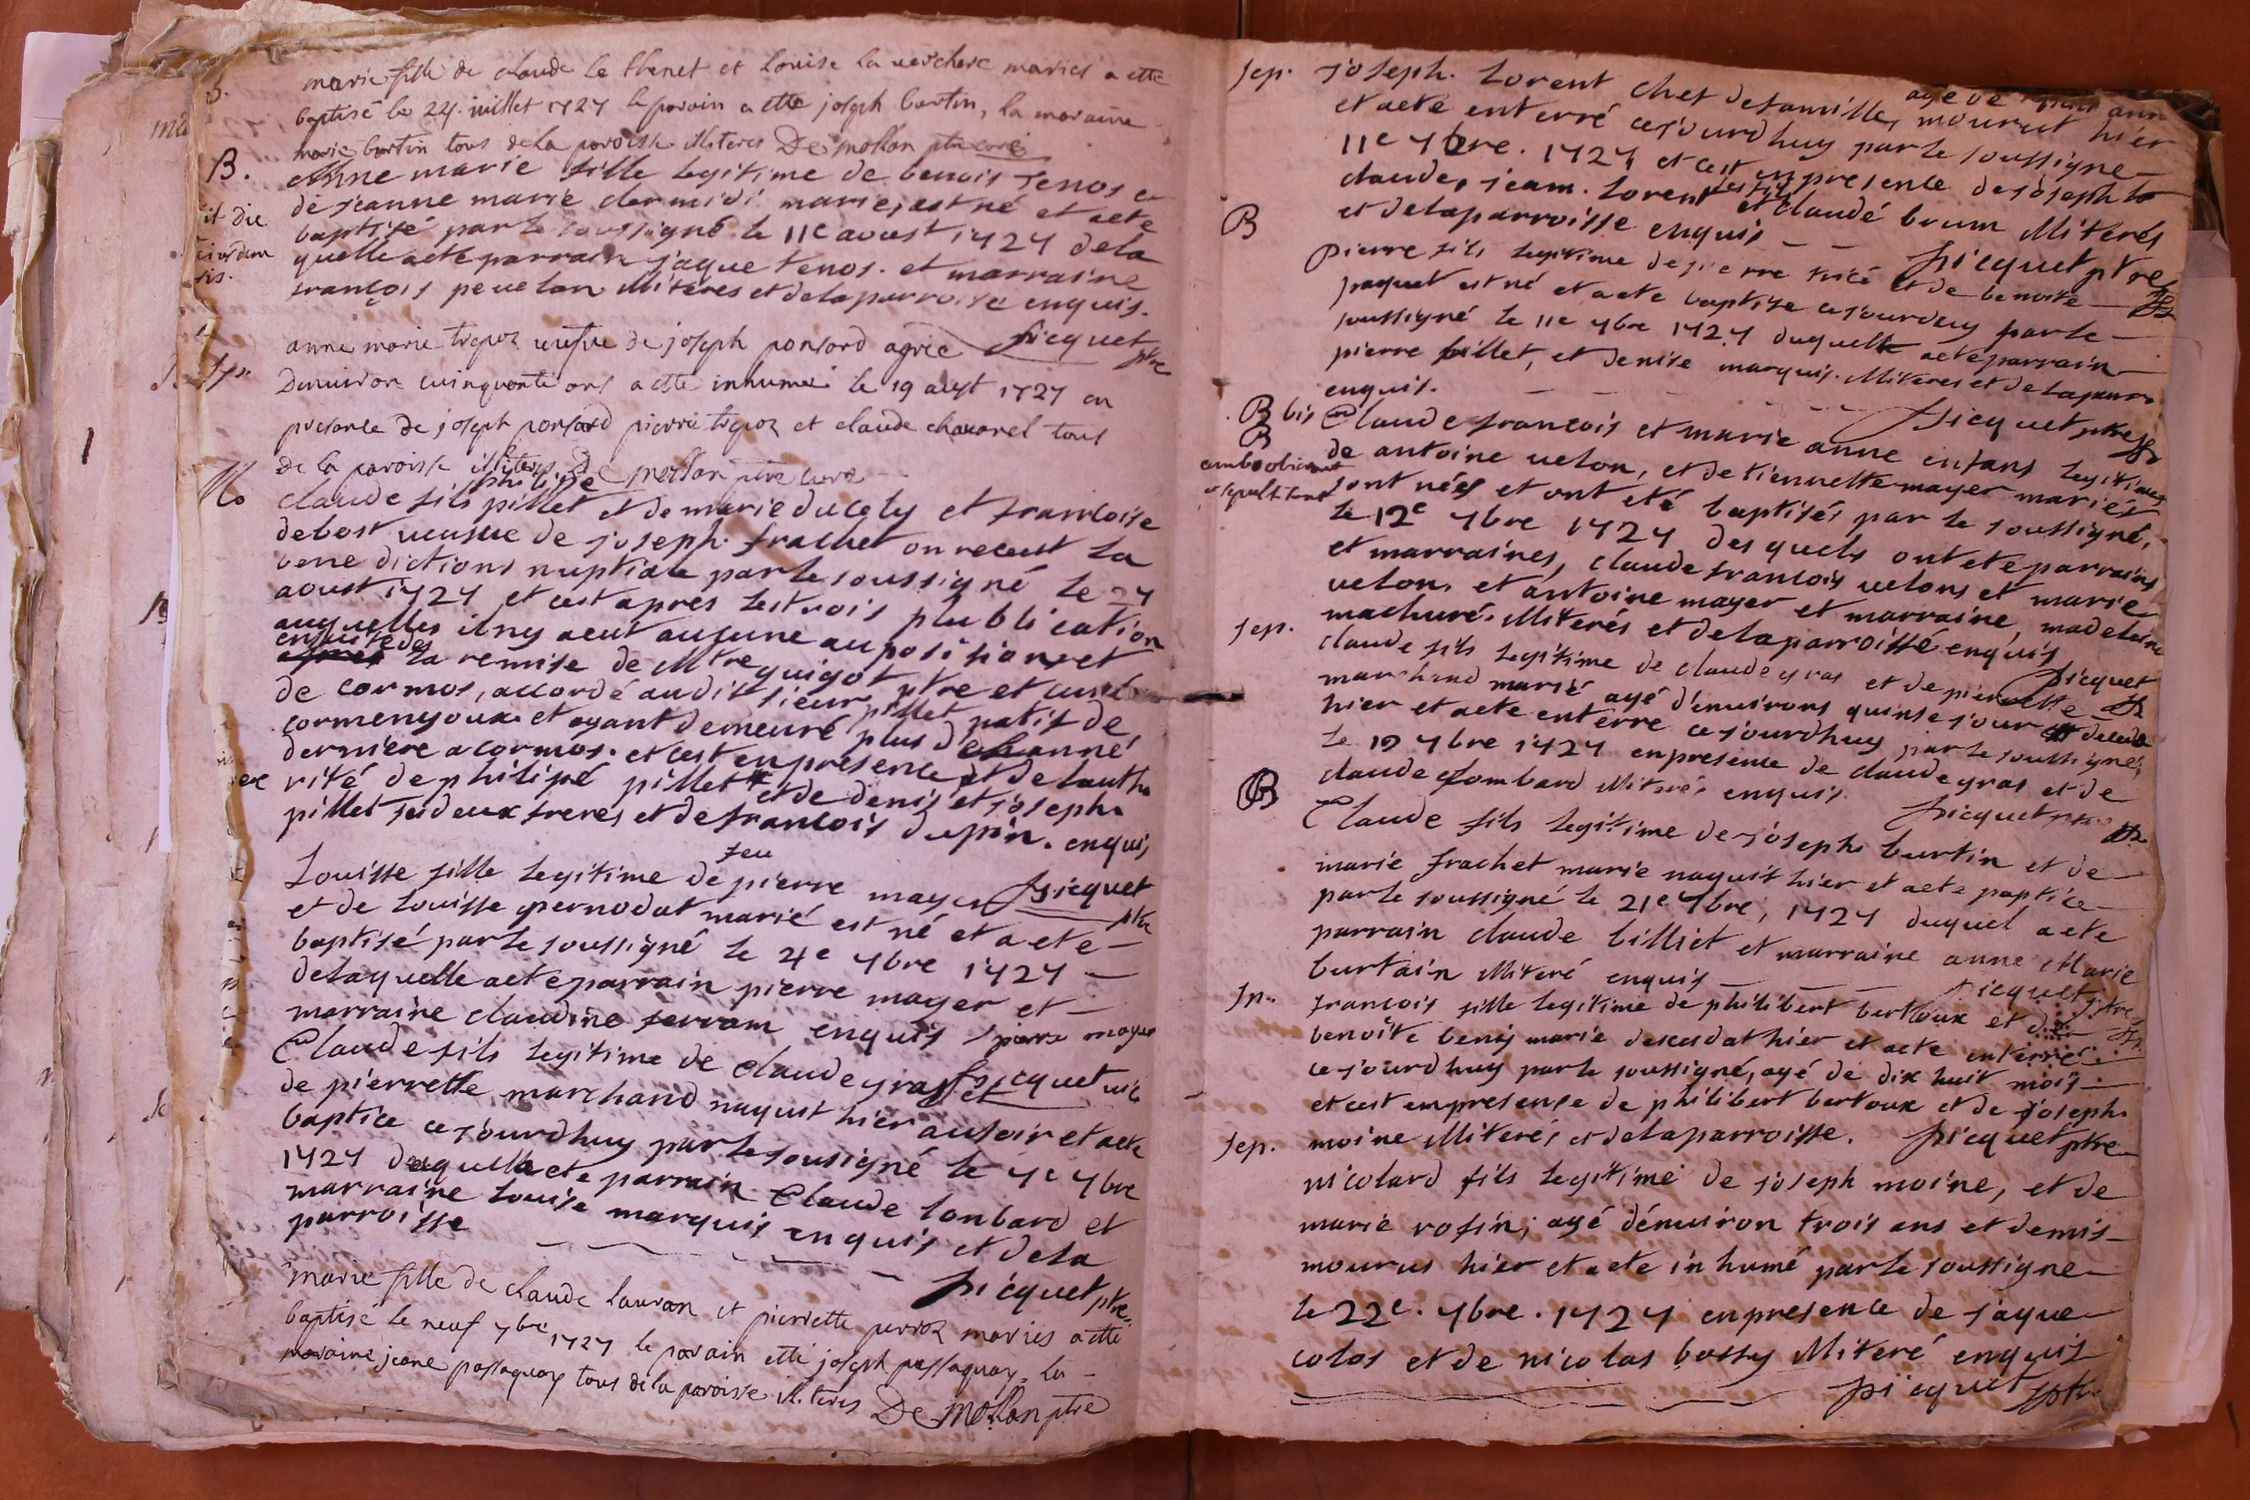 marie fille de claude le thenet et louise la verchere mariés a etté
baptisé le 24 juillet 1727 le parain a etté joseph burtin, la maraine
marie burtin tous de la paroisse illiteres De mollon ptre curé
B. Anne marie fille legitime de benois tenos et
de jeanne marie dermidi mariés, est né et aeté
baptisé par le soussigné le 11e aoust 1727 dela
quelle aeté parrain jaque tenos. et marraine
françois pevelan illiteres et delaparroisse enquis.
picquet ptre
anne marie trepoz veufve de joseph ponsard agée
Denviron cuinquante ans a etté inhumé le 19 aust 1727 en
presance de joseph ponsard pierre trepoz et claude chavarel tous
de la paroisse illiteres De mollon ptre curé
philipe
claude fils pillet et de marie ducly et francoise
debost veusve de joseph frachet on receust la
bene dictions nuptiale par le soussigné le 27
aoust 1727 et cest apres les trois plublication
auquelles il ny aeut aucune auposisions et
ensuite de
la remise de Mtre guigot ptre et curé
de cormos, accordé audit sieur pillet natif de
cormengoux et ayant demeuré plus d'
derniere a cormos. et cest en presence et de lautho
rité de philipé pillet et de denis et joseph
pillet ses deux freres et de francois dupin. enquis
picquet ptre
feu
Louisse fille legitime de pierre mayer
et de louisse pernodat marié est né et a eté
baptisé par le soussigné le 4e 7bre 1727
delaquelle aeté parrain pierre mayer et
marraine claudine ferram enquis pierre mayer
picquet vic
Claude fils legitime de claude gras et
de pierrette marchand naquit hier au soir et aeté
baptice cejourdhuy par le sousigné le 7e 7bre
1727 duquel aeté parrain Claude lonbard et
marraine louise marquis enquis et dela
parroisse
picquet ptre
marie fille de claude lauran et pierrette perroz mariés a etté
baptisé le neuf 7bre 1727 le parain etté joseph passaquay, la
maraine jeane passaquay tous de la paroisse illiteres De mollon ptre
sep. Joseph. Lorent chef defamille, agé de ann
mourut hier
et aeté enterré cejourdhuy par le soussigné
11e 7bre. 1727 et cest en presence de joseph lo
claude, jeam. Lorent ses fils et claudé brum illiterés
et delaparroisse enquis
picquet ptre
B pierre fils legitime de pierre et de benoite
paquet est né et aeté baptise cejourduy par le
soussigné le 11e 7bre 1727 duquelle aeté parrain
pierre pillet, et denise marquis. illiteres et de laparr
enquis.
picquet ptre
B bis Claude francois et marie anne enfans legitimes
B de antoine velon, et de tiennette mayer mariés
sont nées et ont eté baptisés par le soussigné,
le 12e 7bre 1727 des quels ont eté parrains
et marraines, claude francois velons et marie
velon, et antoine mayer et marraine, madelaine
machuré. illiterés et delaparroissé enquis
picquet
sep. claude fils legitime de claude gras et de pierrette
marchand marié agé d'environs quinse jour
hier et aeté enterré cejourdhuy par le soussigné,
le 19 7bre 1727 en presence de claude gras et de
claude Lombard illiterés enquis.
picquet ptre
B Claude fils legitime de joseph burtin et de
marie frachet marié naquit hier et aeté paptice
par le soussigné le 21e 7bre, 1727 duquel aeté
parrain claude billiet et marraine anne Marie
burtain illiteré enquis
picquet ptre
francois fille legitime de philibert bertoux et de
benoite beny marié descedat hier et aeté enterré
cejourdhuy par le soussigné, agé de dix huit mois
et cest en presense de philibert bertoux et de joseph
moine illiterés et delaparroisse. picquet ptre
sep. nicolard fils legitime de joseph moine, et de
marie rofin, agé dénviron trois ans et demis
mourus hier et aeté inhumé par le soussigné
le 22e. 7bre. 1727 en presence de jaque
colos et de nicolas bossy illiteré enquis
picquet ptre